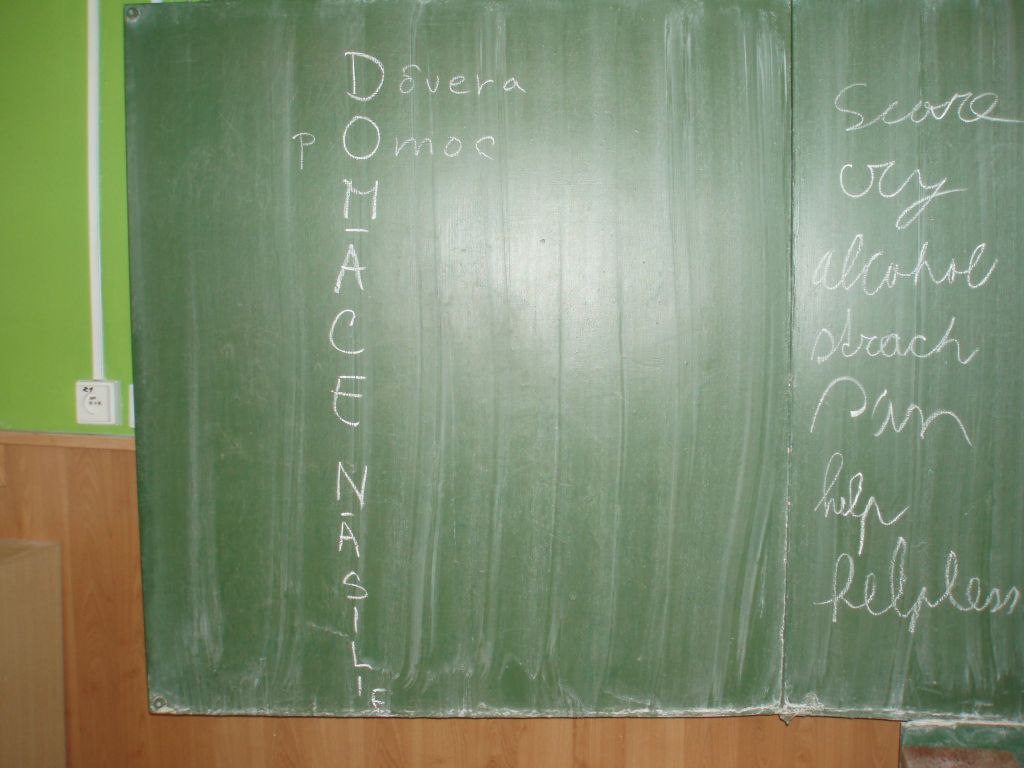 Dôvera
pOmoc
M
Á
C
E
N
Á
S
I
L
I
E
Score
cry
alcohol
strach
Pán
help
helpless